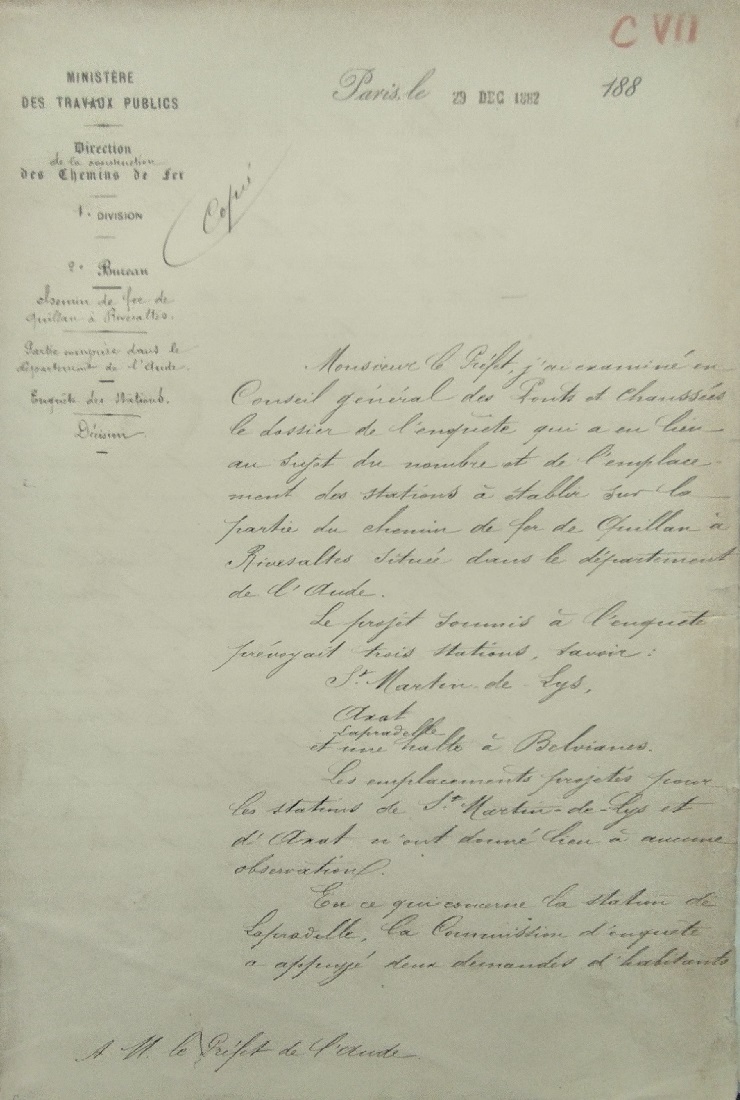 C VII
MINISTÈRE
DES TRAVAUX PUBLICS
Direction
de la construction
des Chemins de Fer
1e DIVISION
2e Bureau
Chemin de fer de
Quillan à Rivesaltes.
Partie comprise dans le
département de l'Aude.
Enquête des stations.
Décision
Paris, le 29 DEC 1882 188
Copié
Monsieur le Préfet, j'ai examiné en
Conseil général des Ponts et Chaussées
le dossier de l'enquête qui a eu lieu
au sujet du nombre et de l'emplace-
ment des stations à établir sur la
partie du chemin de fer de Quillan à
Rivesaltes située dans le département
de l'Aude.
Le projet soumis à l'enquête
prévoyait trois stations, savoir :
St Martin-de-Lys,
Axat
Lapradelle
et une halte à Belvianes.
Les emplacements projetés pour
les stations de St Martin-de-Lys et
d'Axat n'ont donné lieu à aucune
observation.
En ce qui concerne la station de
Lapradelle, la Commission d'enquête
a appuyé deux demandes d'habitants
A M. le Préfet de l'Aude